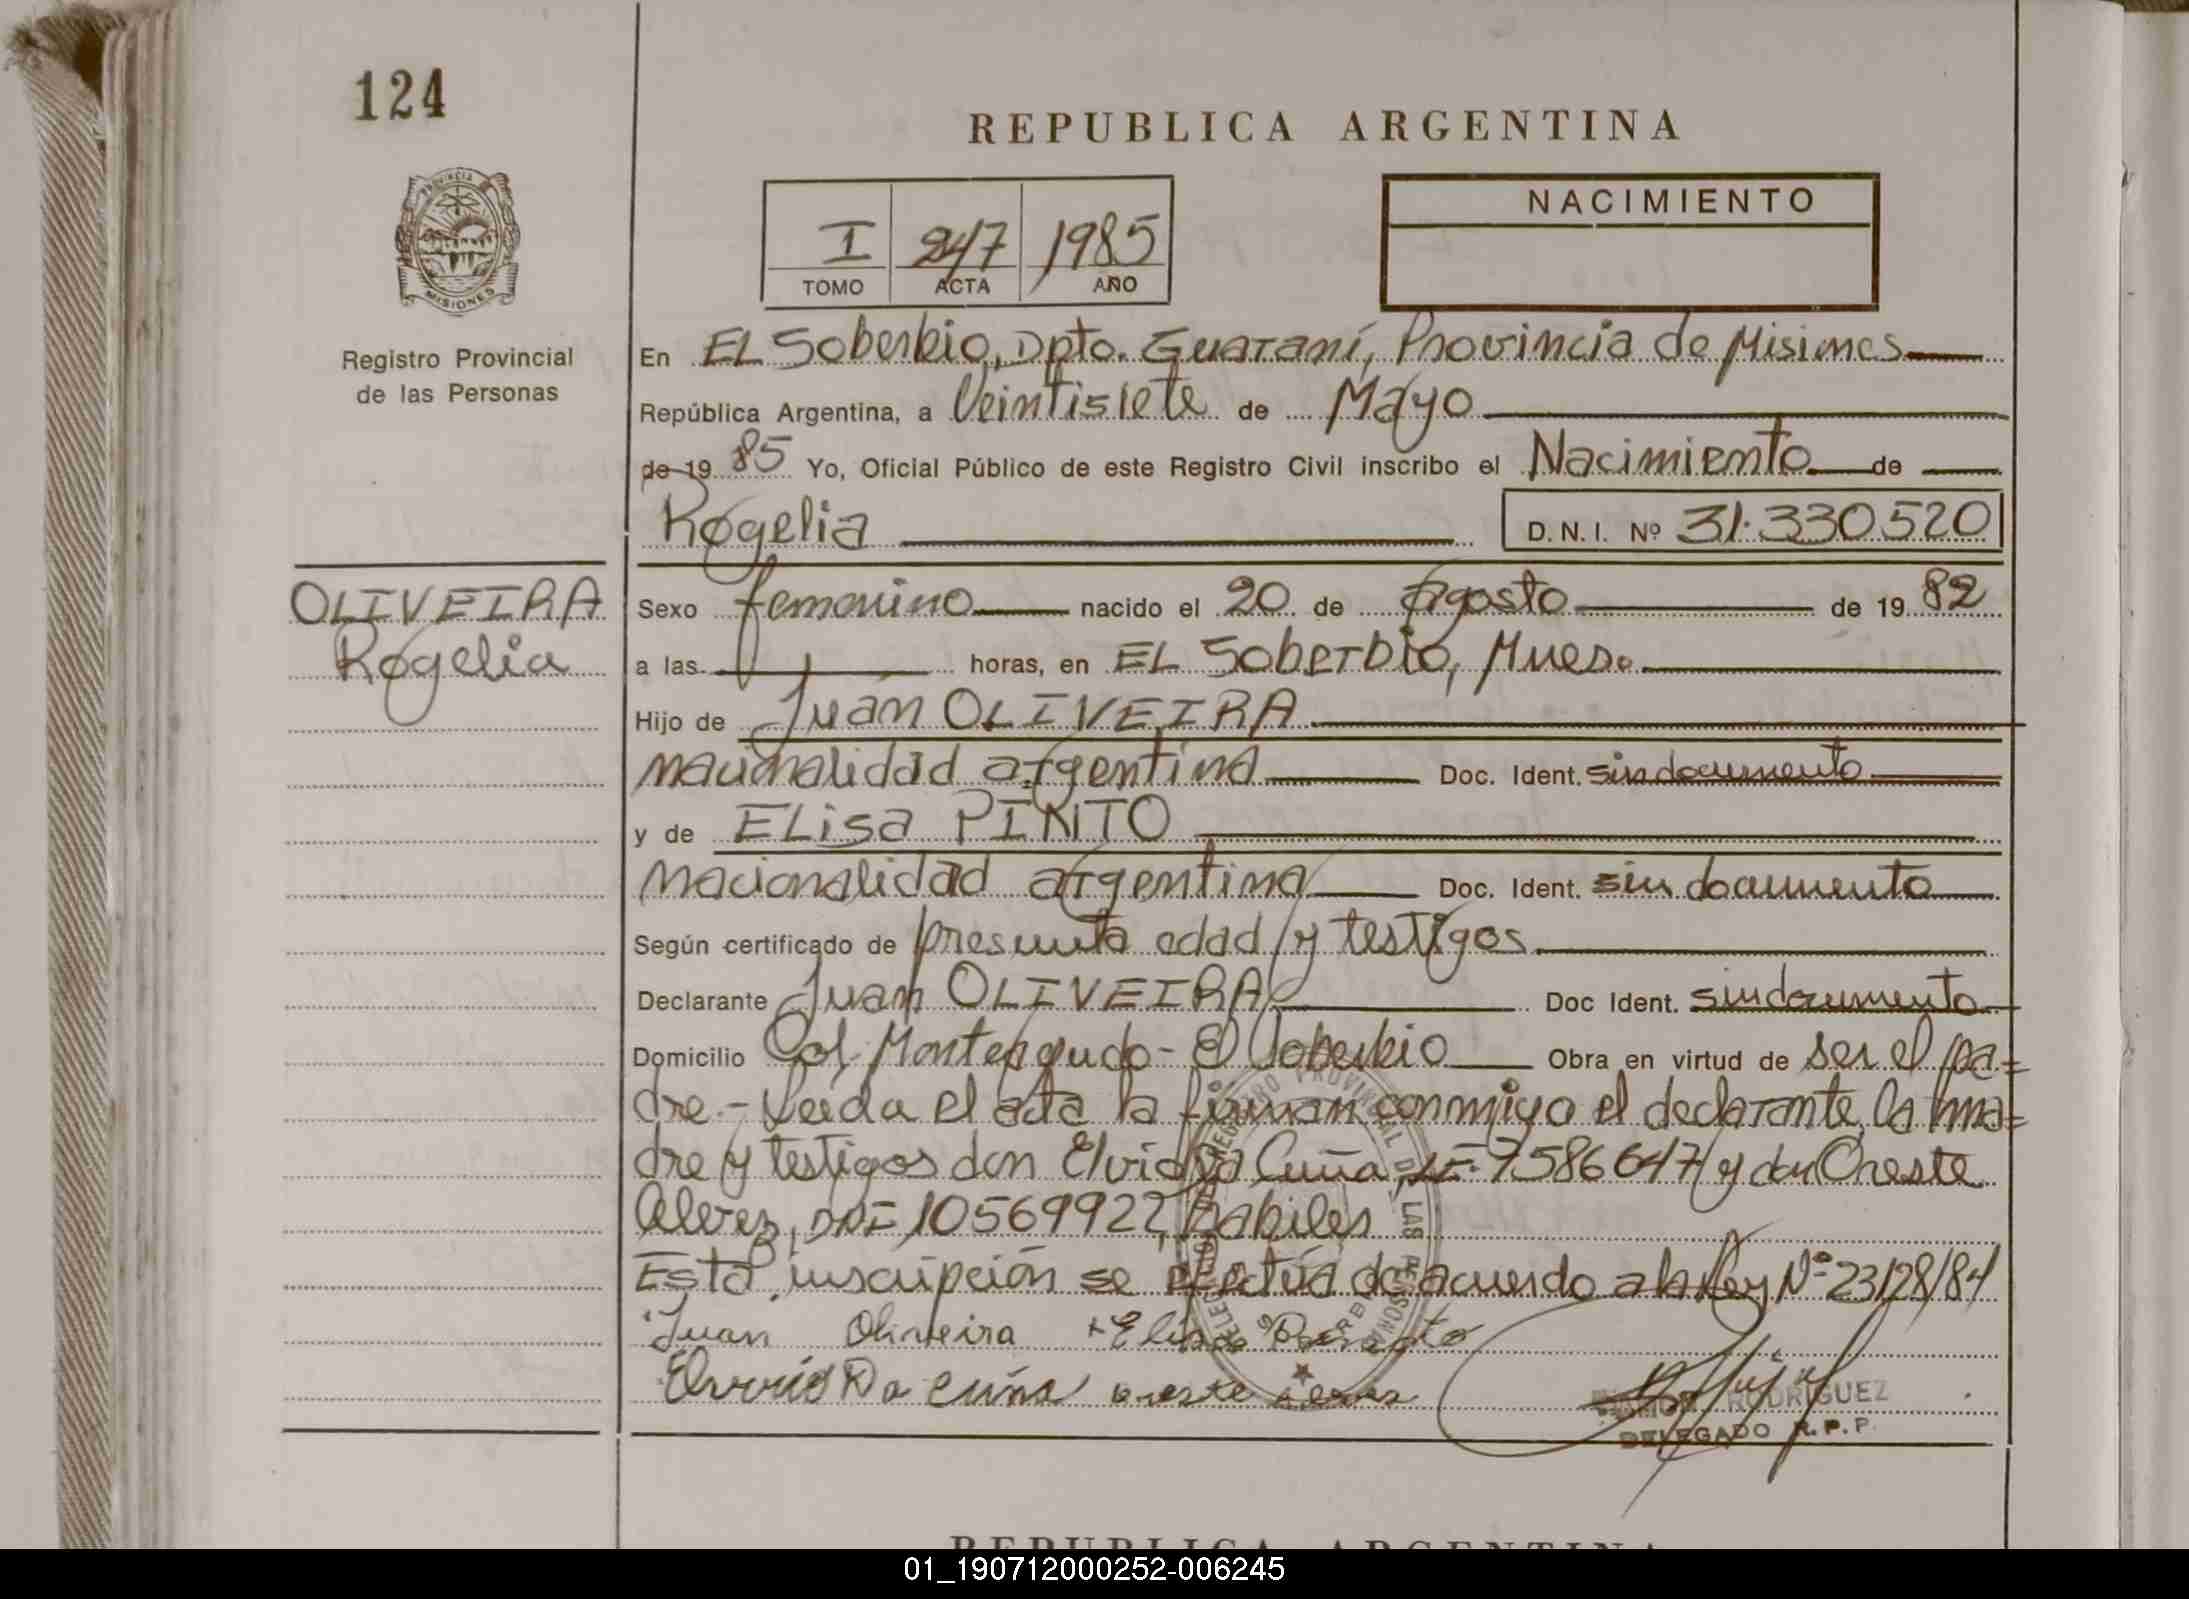 124
REPUBLICA ARGENTINA
PROVINCIA
MISIONES
Registro Provincial
de las Personas
I 247 1985
TOMO ACTA AÑO
NACIMIENTO
En EL Soberbio, Dpto. Guaraní, Provincia de Misiones
República Argentina, a Veintisiete de Mayo
de 19 85 Yo, Oficial Público de este Registro Civil inscribo el Nacimiento de
Rogelia D. N. I. Nº 31.330.520
OLIVEIRA
Rogelia
Sexo femenino nacido el 20 de Agosto de 19 82
a las horas, en EL Soberbio, Mnes.
Hijo de Juan OLIVEIRA
nacionalidad argentina Doc. Ident. sin documento
y de ELisa PINTO
nacionalidad argentina Doc. Ident. sin documento
Según certificado de presunta edad y testigos
Declarante Juan OLIVEIRA Doc Ident. sin documento
Domicilio Col. Monteagudo - El Soberbio Obra en virtud de ser el pa=
dre.- Leida el acta la firman conmigo el declarante, la ma=
dre y testigos don Elvio Da Cuña, LE. 7.586647 y don Oreste
Alvez, DNI 10569922, habiles
Esta inscripción se efectúa de acuerdo a la Ley Nº 23128/84
Juan Oliveira + Elisa Pinto
Elvrio Da cuña oreste alves
RODRIGUEZ
DELEGADO R. P. P.
REPUBLICA ARGENTINA
01_190712000252-006245